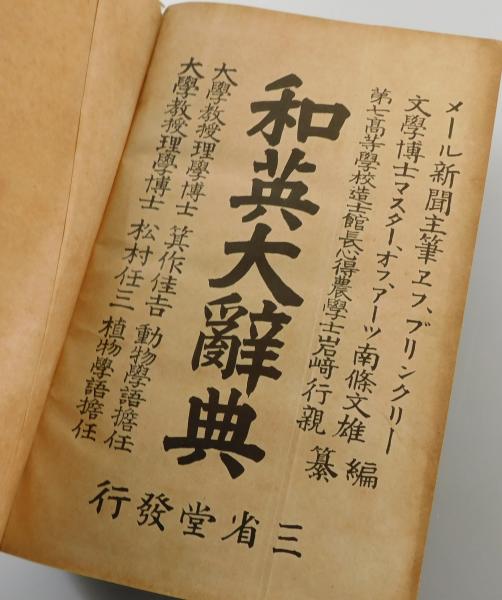 メール新聞主筆エフ、ブリンクリー
文學博士マスター、オフ、アーツ南條文雄 編
第七高等學校造士館長心得農學士岩﨑行親 纂
和英大辭典
大學教授理學博士 箕作佳吉 動物學語擔任
大學教授理學博士 松村任三 植物學語擔任
三省堂發行